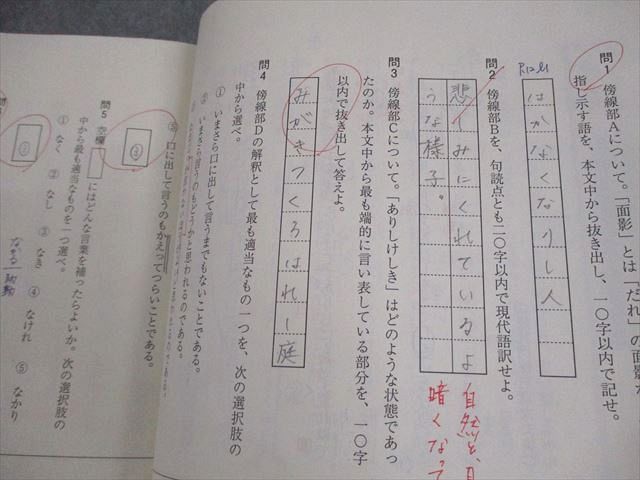 問1 傍線部Aについて。「面影」とは「だれ」の面影
指し示す語を、本文中から抜き出し、一〇字以内で記せ。
P12.l1
はかなくなりし人
問2 傍線部Bを、句読点とも二〇字以内で現代語訳せよ。
悲しみにくれているよ
うな様子。
自然と、
暗くなって
問3 傍線部Cについて。「ありしけしき」はどのような状態であっ
たのか。本文中から最も端的に言い表している部分を、一〇字
以内で抜き出して答えよ。
みがきつくろはれし庭
問4 傍線部Dの解釈として最も適当なもの一つを、次の選択肢の
中から選べ。
① いまさら口に出して言うまでもないことである。
② いまさら言うのもどうかと思われるのである。
口に出して言うのもかえってつらいことである。
③
問5 空欄 にはどんな言葉を補ったらよいか。次の選択肢の
中から最も適当なものを一つ選べ。
① なく ② なし ③ なき ④ なけれ ⑤ なかり
①